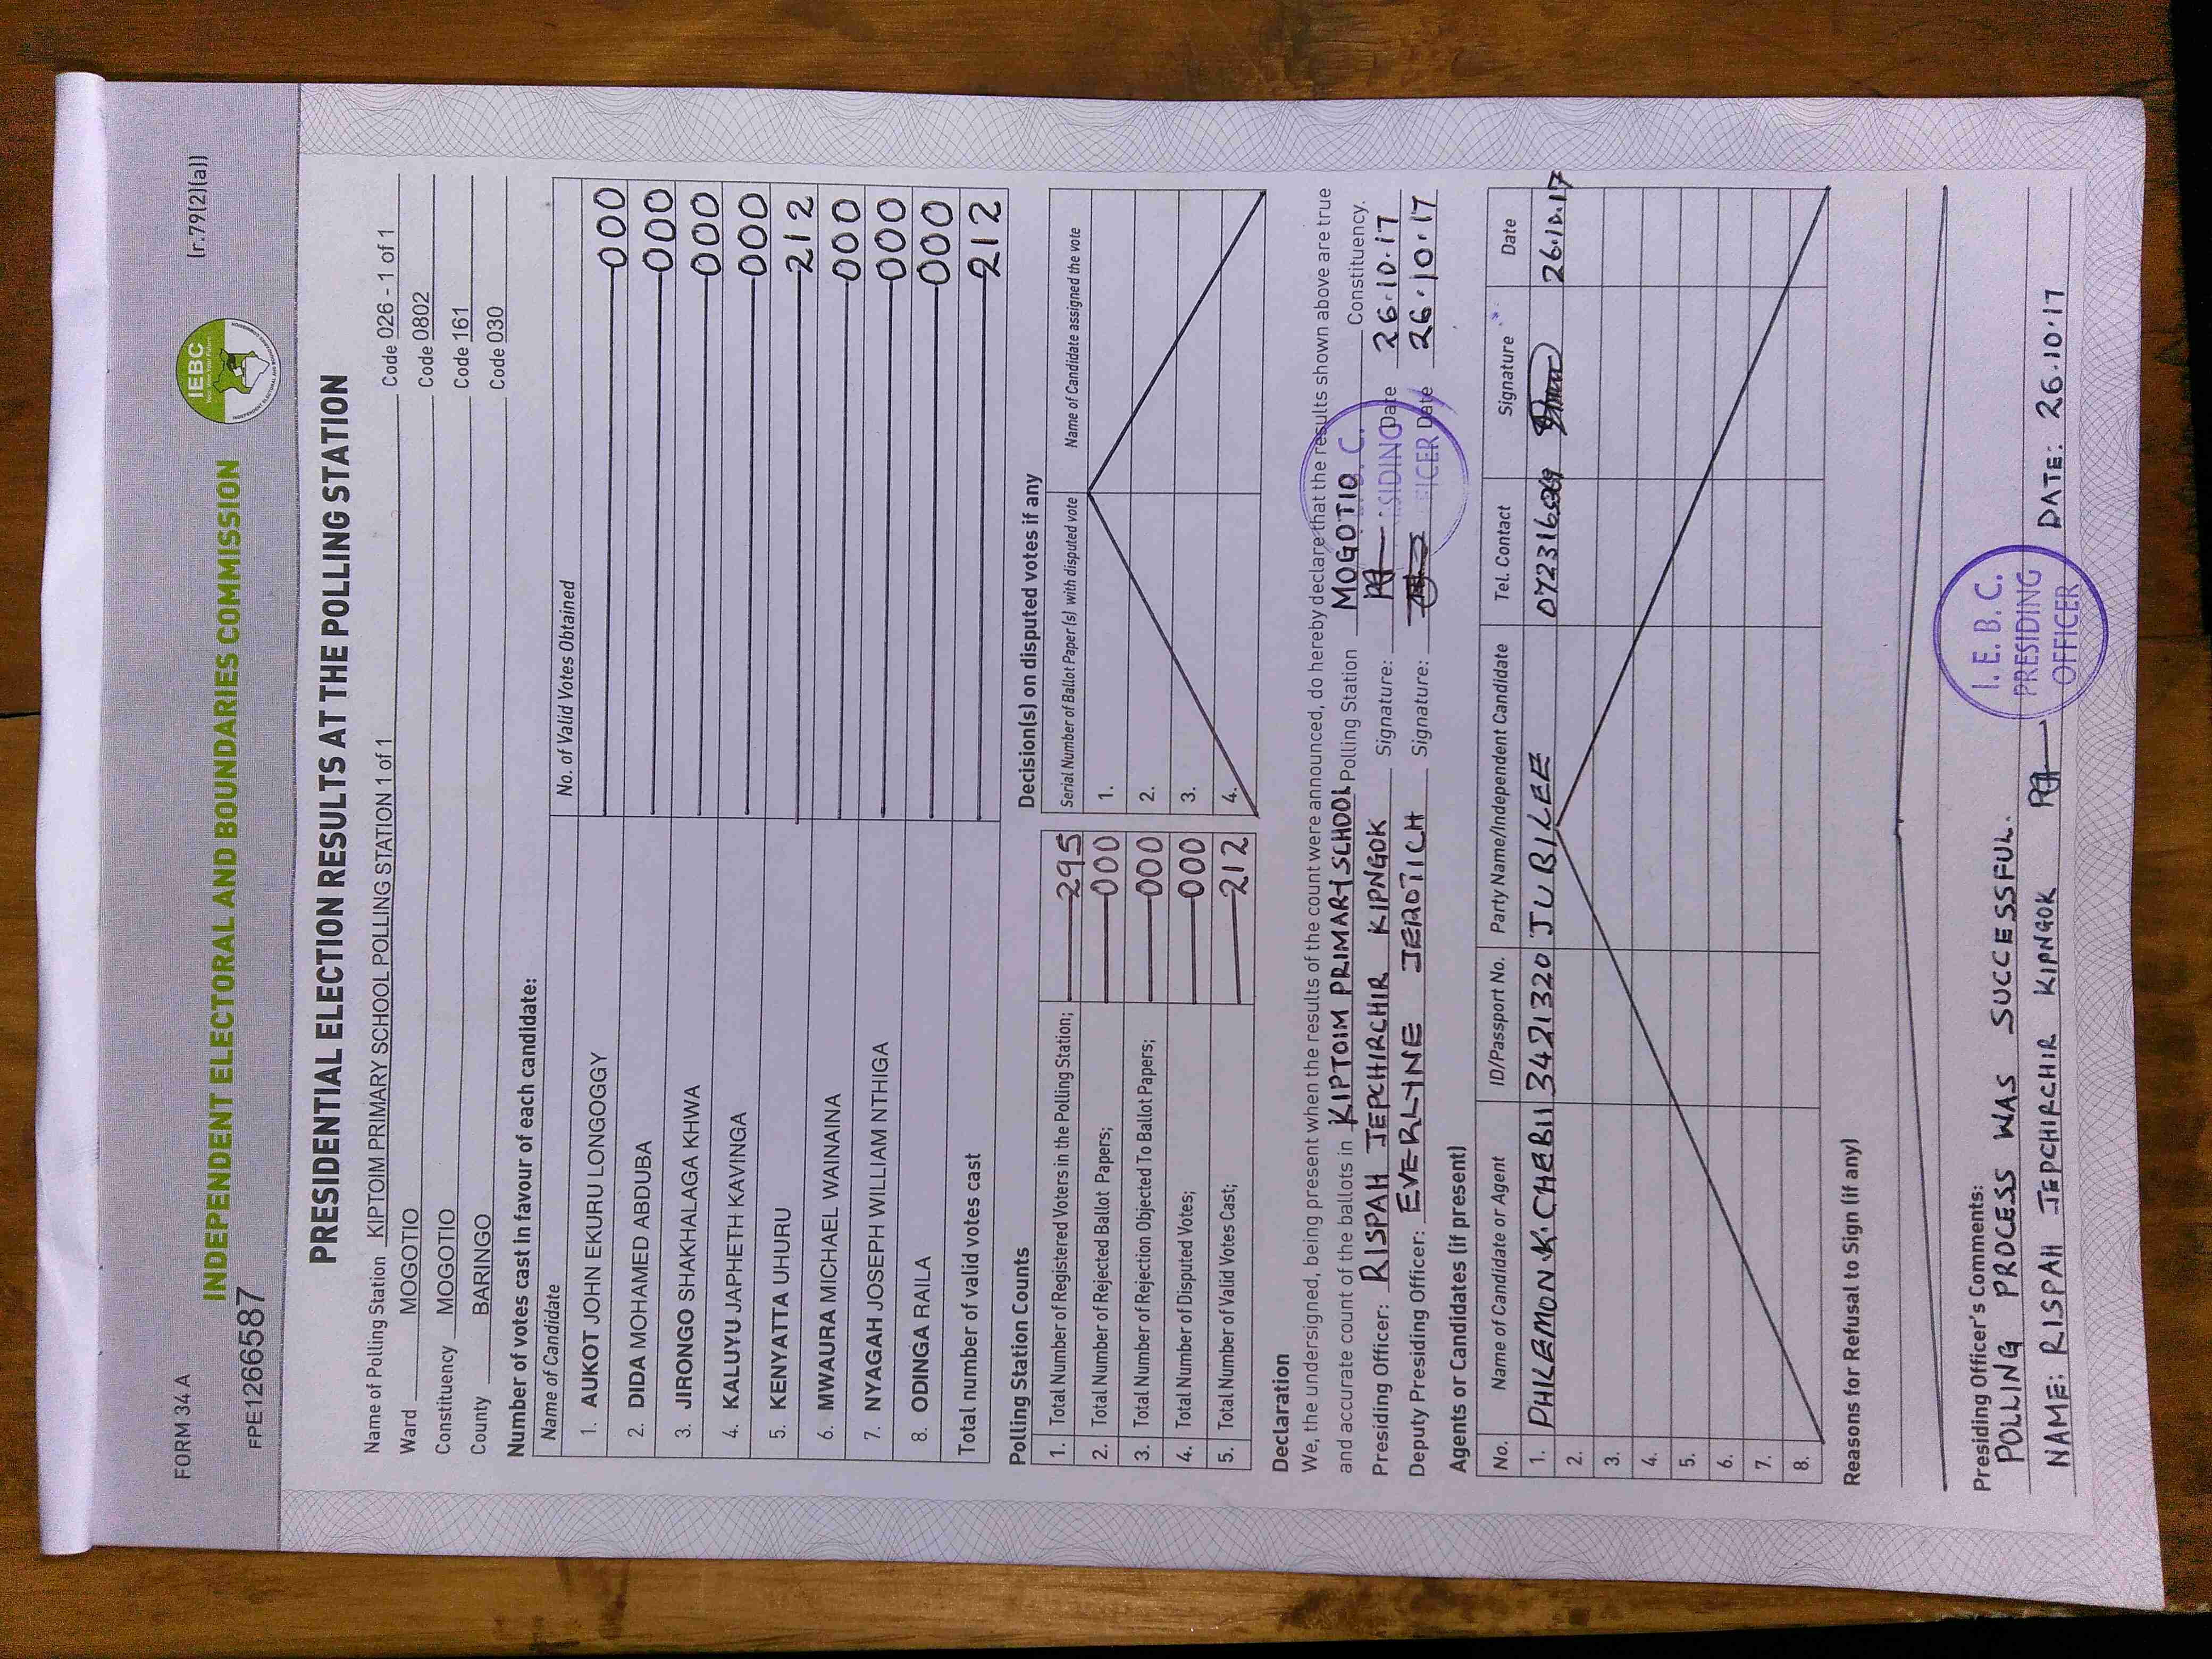 FORM 34 A
[r.79(2)(a)]
IEBC
INDEPENDENT ELECTORAL AND BOUNDARIES COMMISSION
FPE1266587
PRESIDENTIAL ELECTION RESULTS AT THE POLLING STATION
Name of Polling Station KIPTOIM PRIMARY SCHOOL POLLING STATION 1 of 1 Code 026 - 1 of 1
Ward MOGOTIO Code 0802
Constituency MOGOTIO Code 161
County BARINGO Code 030
Number of votes cast in favour of each candidate:
Name of Candidate No. of Valid Votes Obtained
1. AUKOT JOHN EKURU LONGOGGY 000
2. DIDA MOHAMED ABDUBA 000
3. JIRONGO SHAKHALAGA KHWA 000
4. KALUYU JAPHETH KAVINGA 000
5. KENYATTA UHURU 212
6. MWAURA MICHAEL WAINAINA 000
7. NYAGAH JOSEPH WILLIAM NTHIGA 000
8. ODINGA RAILA 000
Total number of valid votes cast 212
Polling Station Counts
1. Total Number of Registered Voters in the Polling Station; 295
2. Total Number of Rejected Ballot Papers; 000
3. Total Number of Rejection Objected To Ballot Papers; 000
4. Total Number of Disputed Votes; 000
5. Total Number of Valid Votes Cast; 212
Decision(s) on disputed votes if any
Serial Number of Ballot Paper (s) with disputed vote Name of Candidate assigned the vote
1.
2.
3.
4.
Declaration
We, the undersigned, being present when the results of the count were announced, do hereby declare that the results shown above are true
and accurate count of the ballots in KIPTOIM PRIMARY SCHOOL Polling Station MOGOTIO Constituency.
Presiding Officer: RISPAH JEPCHIRCHIR KIPNGOK Signature: Date 26.10.17
Deputy Presiding Officer: EVERLYNE JEROTICH Signature: Date 26.10.17
Agents or Candidates (if present)
No. Name of Candidate or Agent ID/Passport No. Party Name/Independent Candidate Tel. Contact Signature Date
1. PHILEMON K. CHEBII 3421320 JUBILEE 26.10.17
2.
3.
4.
5.
6.
7.
8.
Reasons for Refusal to Sign (if any)
Presiding Officer's Comments:
POLLING PROCESS WAS SUCCESSFUL.
NAME: RISPAH JEPCHIRCHIR KIPNGOK DATE: 26.10.17
I. E. B. C.
PRESIDING
OFFICER